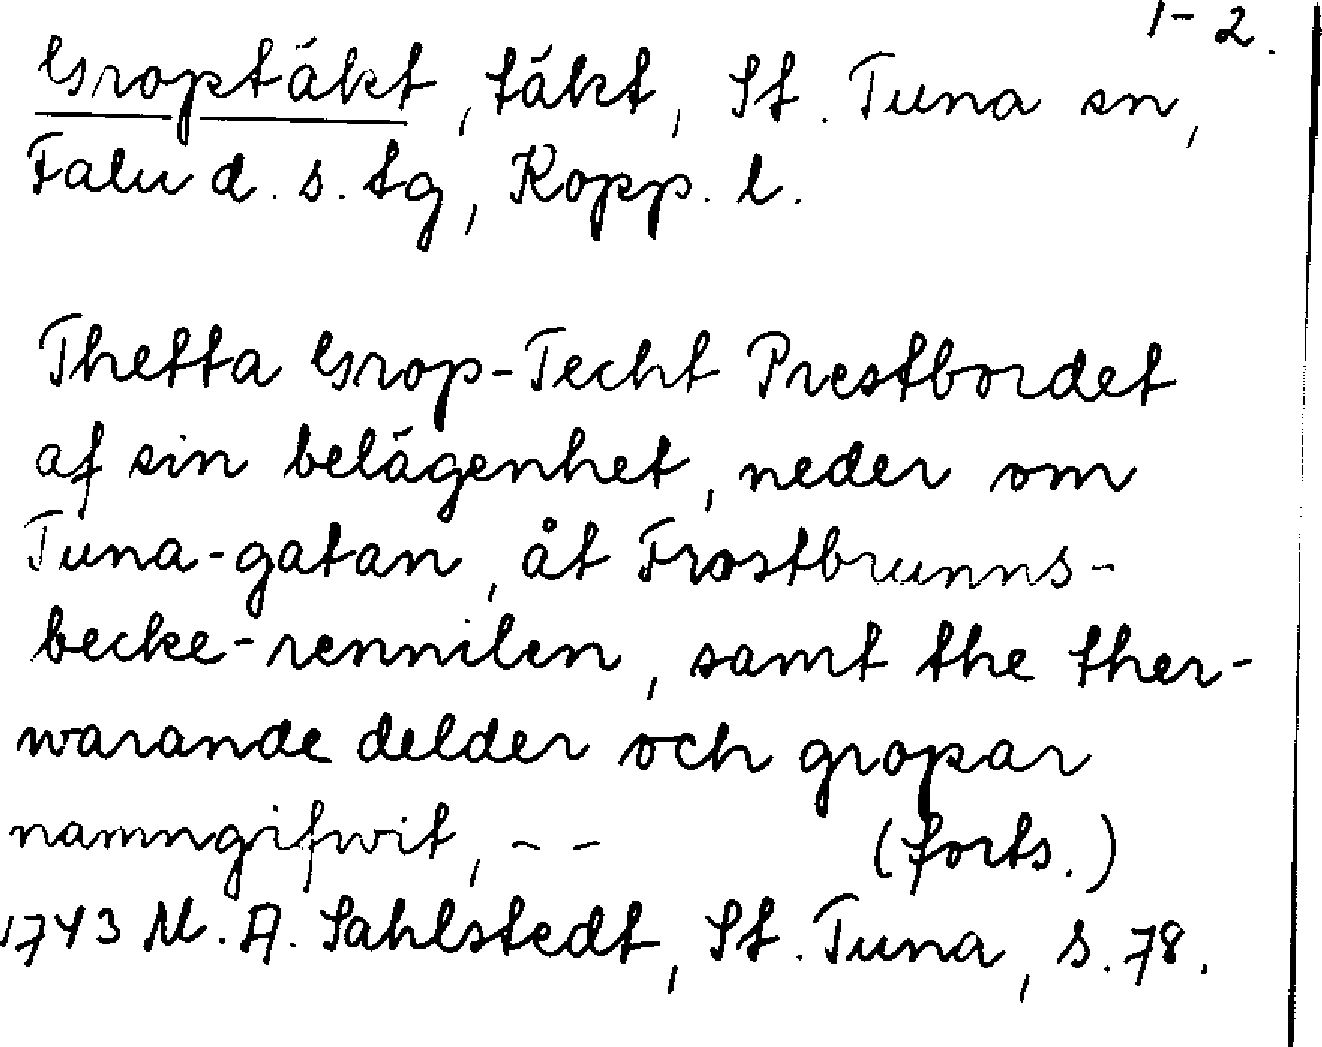 1-2.
Groptäkt, täkt, St. Tuna sn,
Falu d. s. tg, Kopp. l.
Thetta Grop-Techt Prestbordet
af sin belägenhet, neder om
Tuna-gatan, åt Frostbrunns-
becke-rennilen, samt the ther-
warande delder och gropar
namngifwit, - - (forts.)
1743 M. A. Sahlstedt, St. Tuna, s. 78.